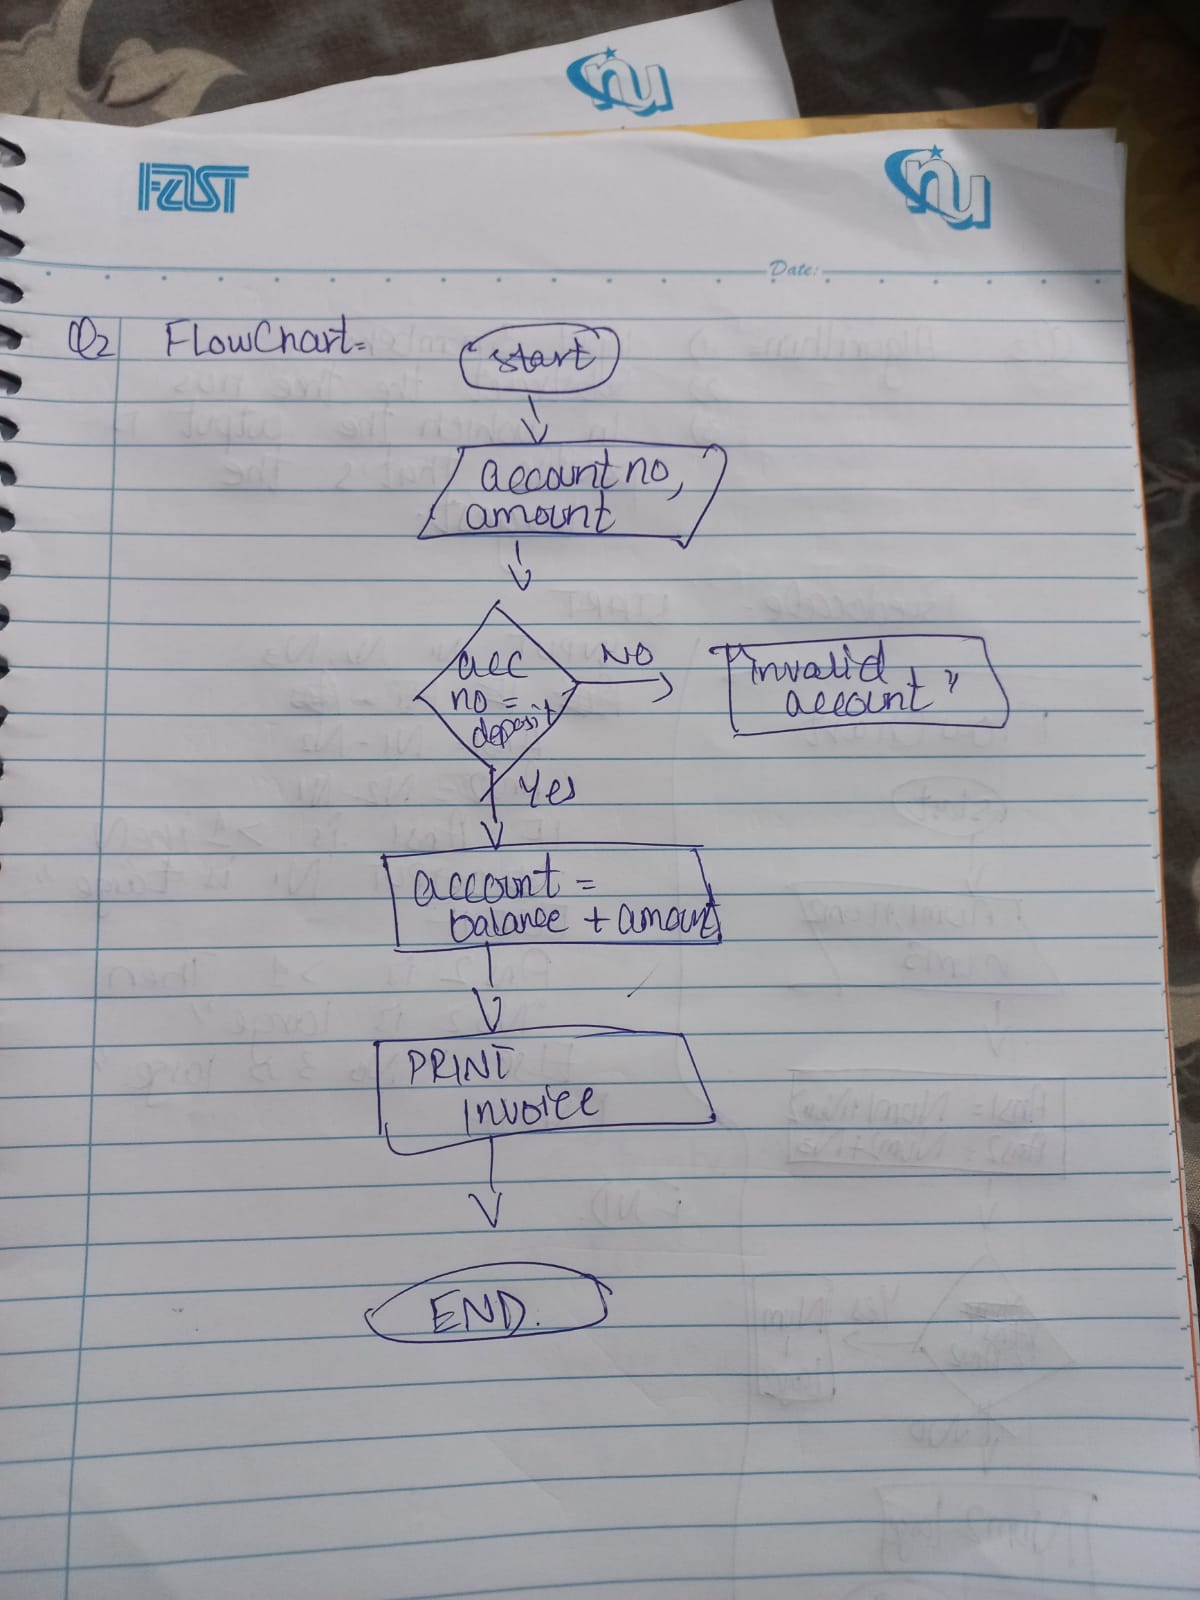 nu
FAST
nu
Date:
Q2 FlowChart=
start
account no,
amount
acc
no =
deposit
NO
"invalid
account"
Yes
account =
balance + amount
PRINT
invoice
END.